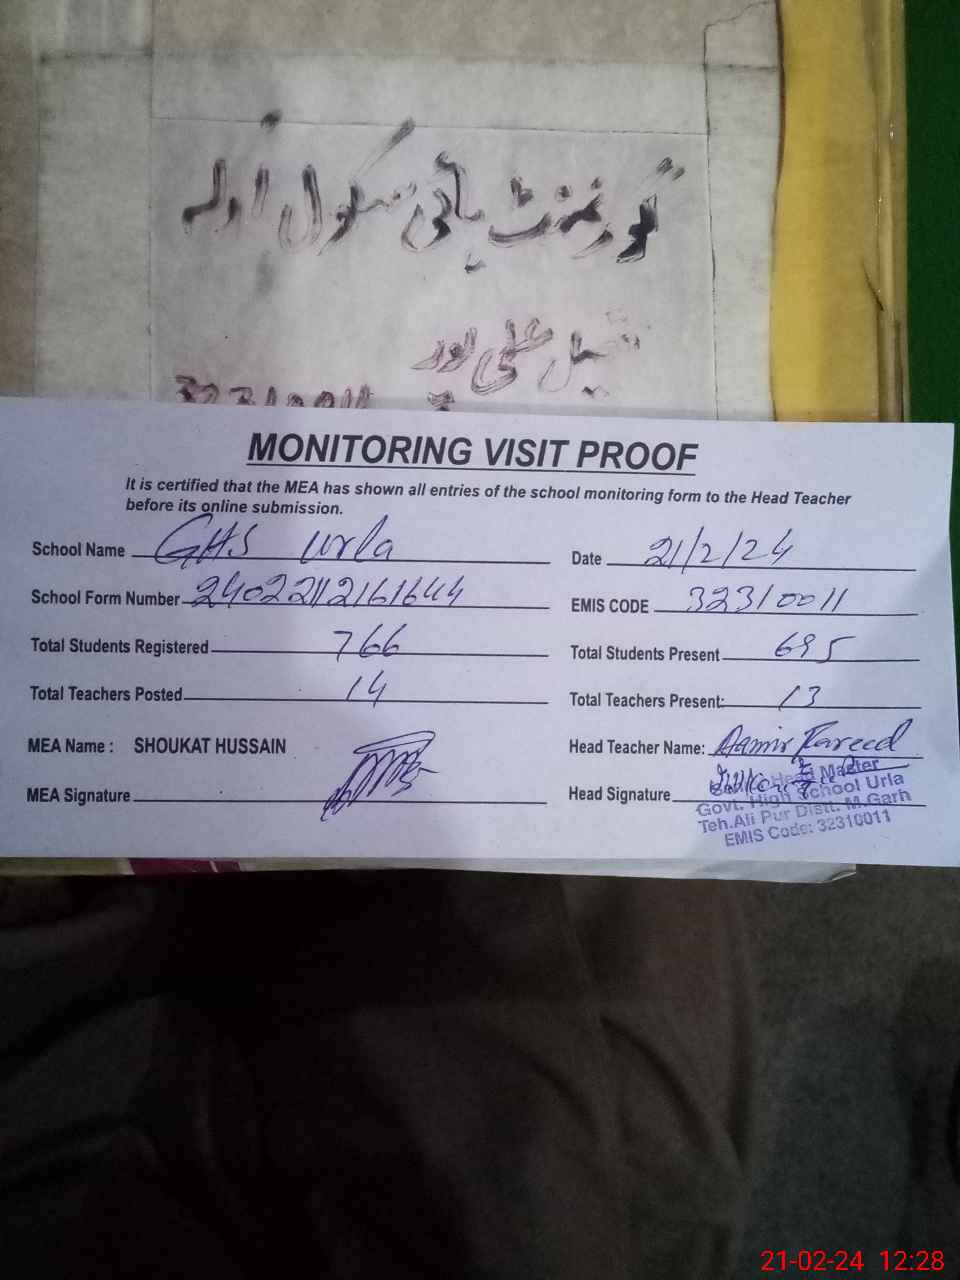 گورنمنٹ ہائی سکول اُرلہ
تحصیل علی پور
32310011
MONITORING VISIT PROOF
It is certified that the MEA has shown all entries of the school monitoring form to the Head Teacher
before its online submission.
School Name GHS Urla
Date 21/2/24
School Form Number 24022112161644
EMIS CODE 32310011
Total Students Registered 766
Total Students Present 695
Total Teachers Posted 14
Total Teachers Present: 13
MEA Name : SHOUKAT HUSSAIN
Head Teacher Name: Aamir Fareed
MEA Signature
Head Signature
Head Master
Govt. High School Urla
Teh.Ali Pur Distt. M.Garh
EMIS Code: 32310011
21-02-24 12:28